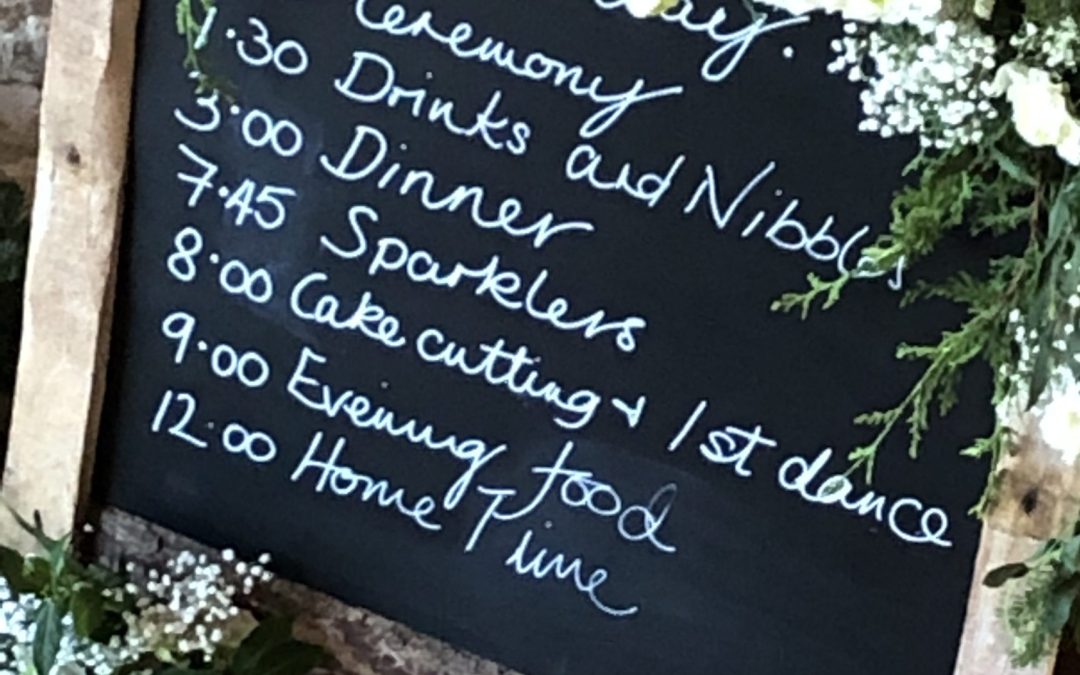 Ceremony
1.30 Drinks and Nibbles
3.00 Dinner
7.45 Sparklers
8.00 Cake cutting + 1st dance
9.00 Evening food
12.00 Home Time